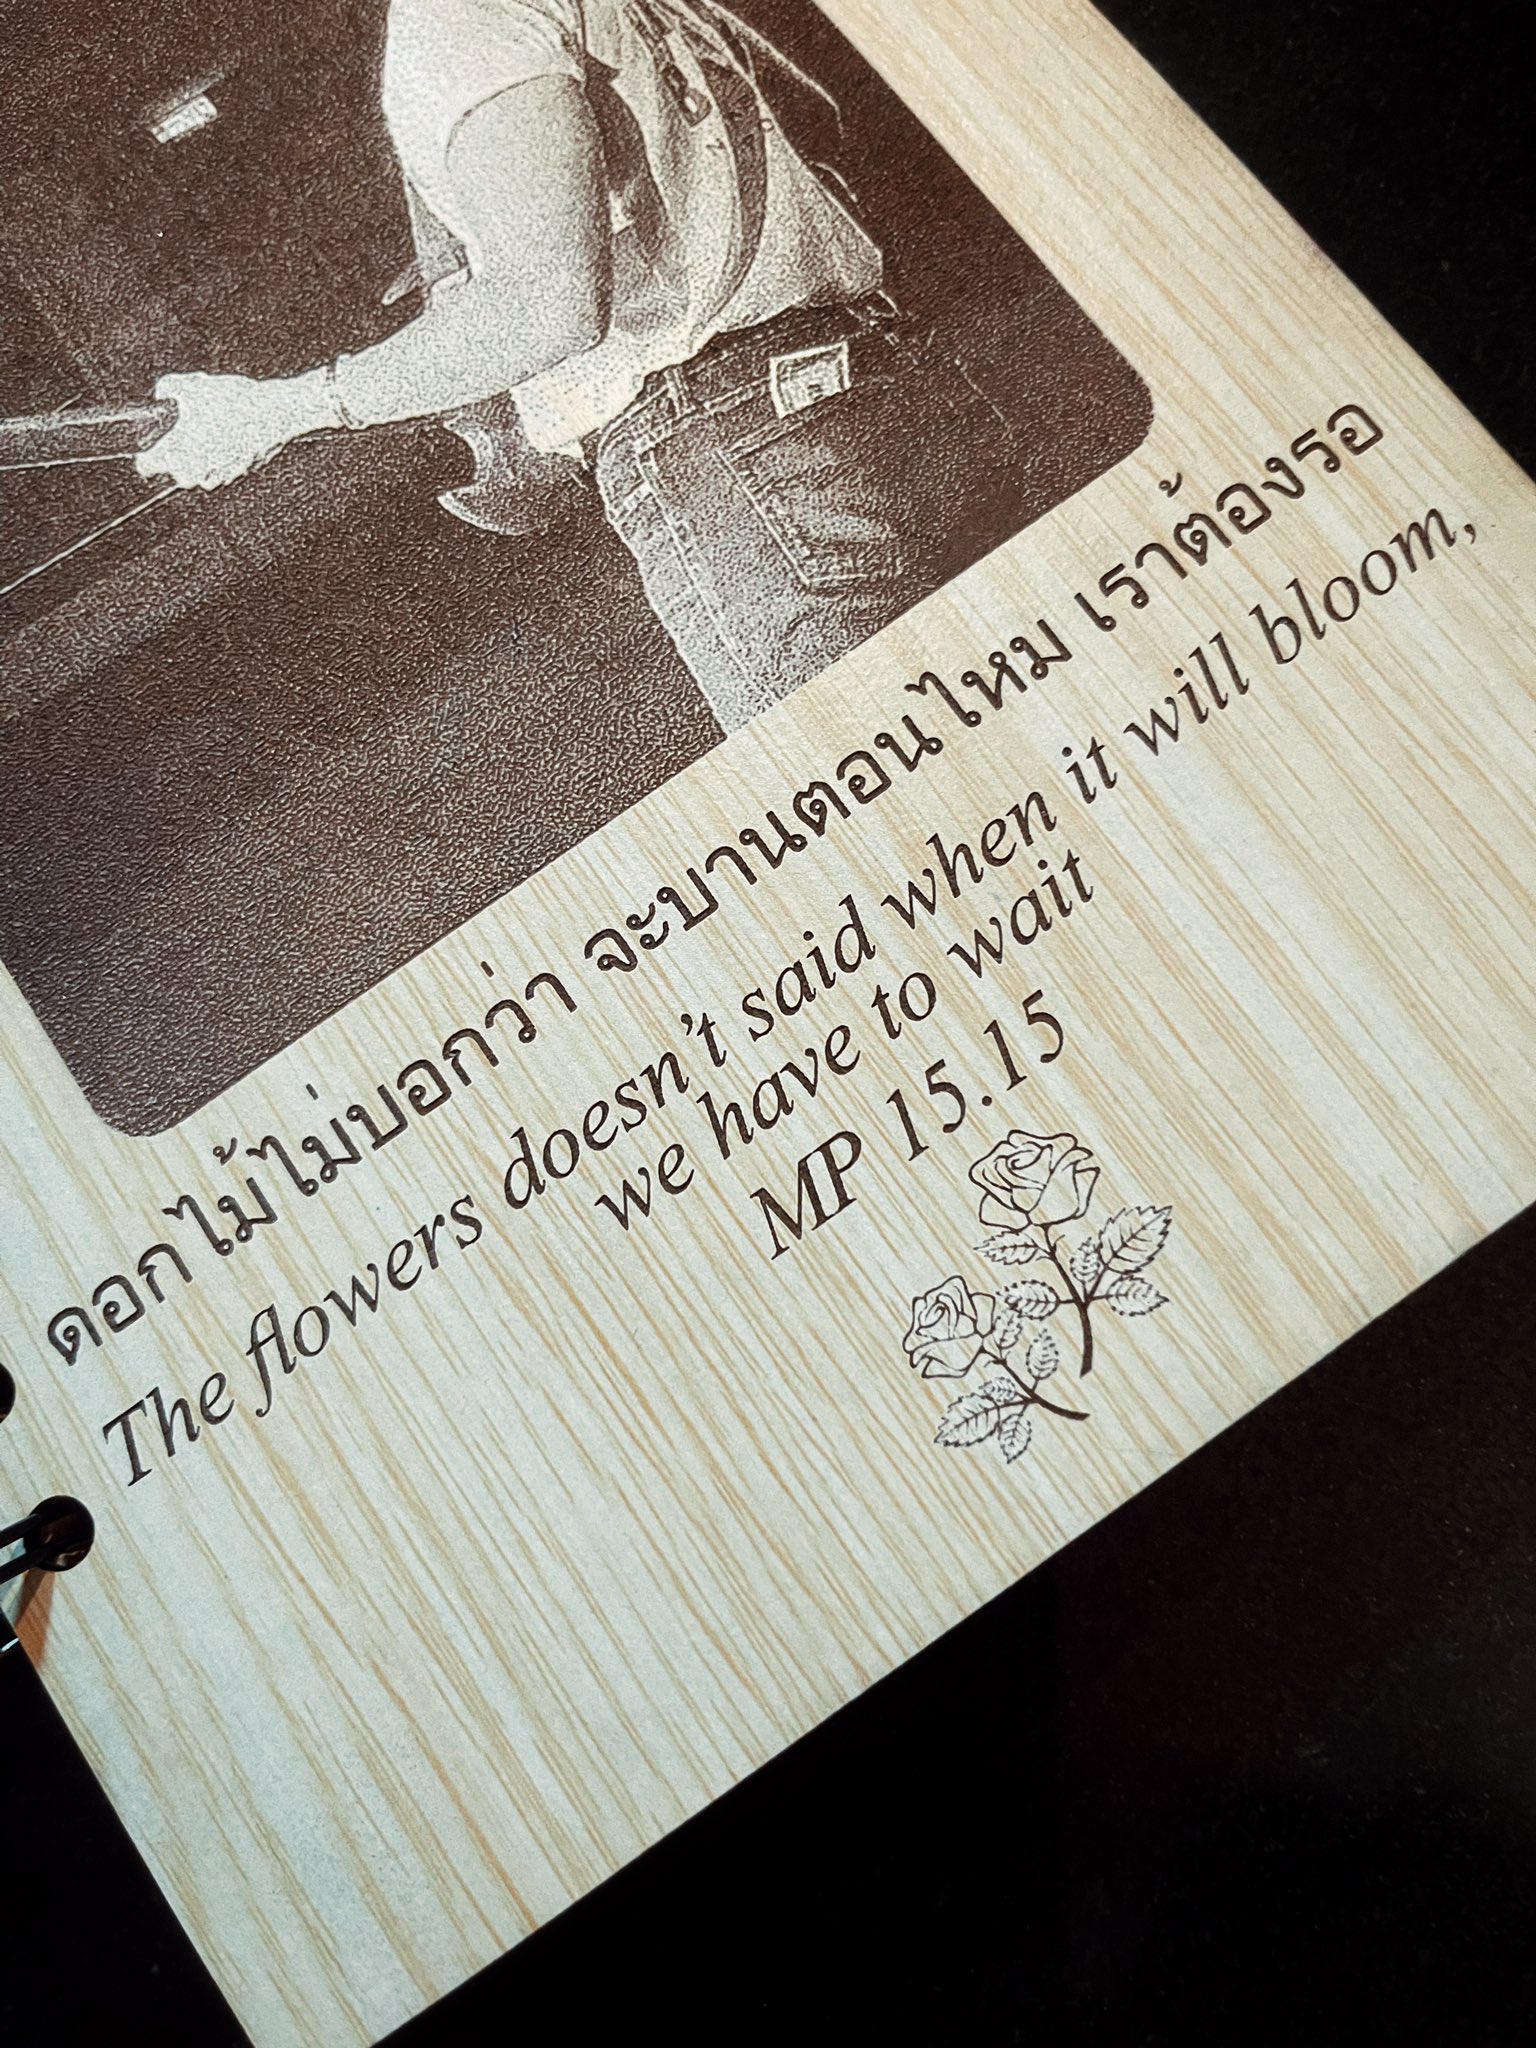 ดอกไม้ไม่บอกว่า จะบานตอนไหม เราต้องรอ
The flowers doesn't said when it will bloom,
we have to wait
MP 15.15